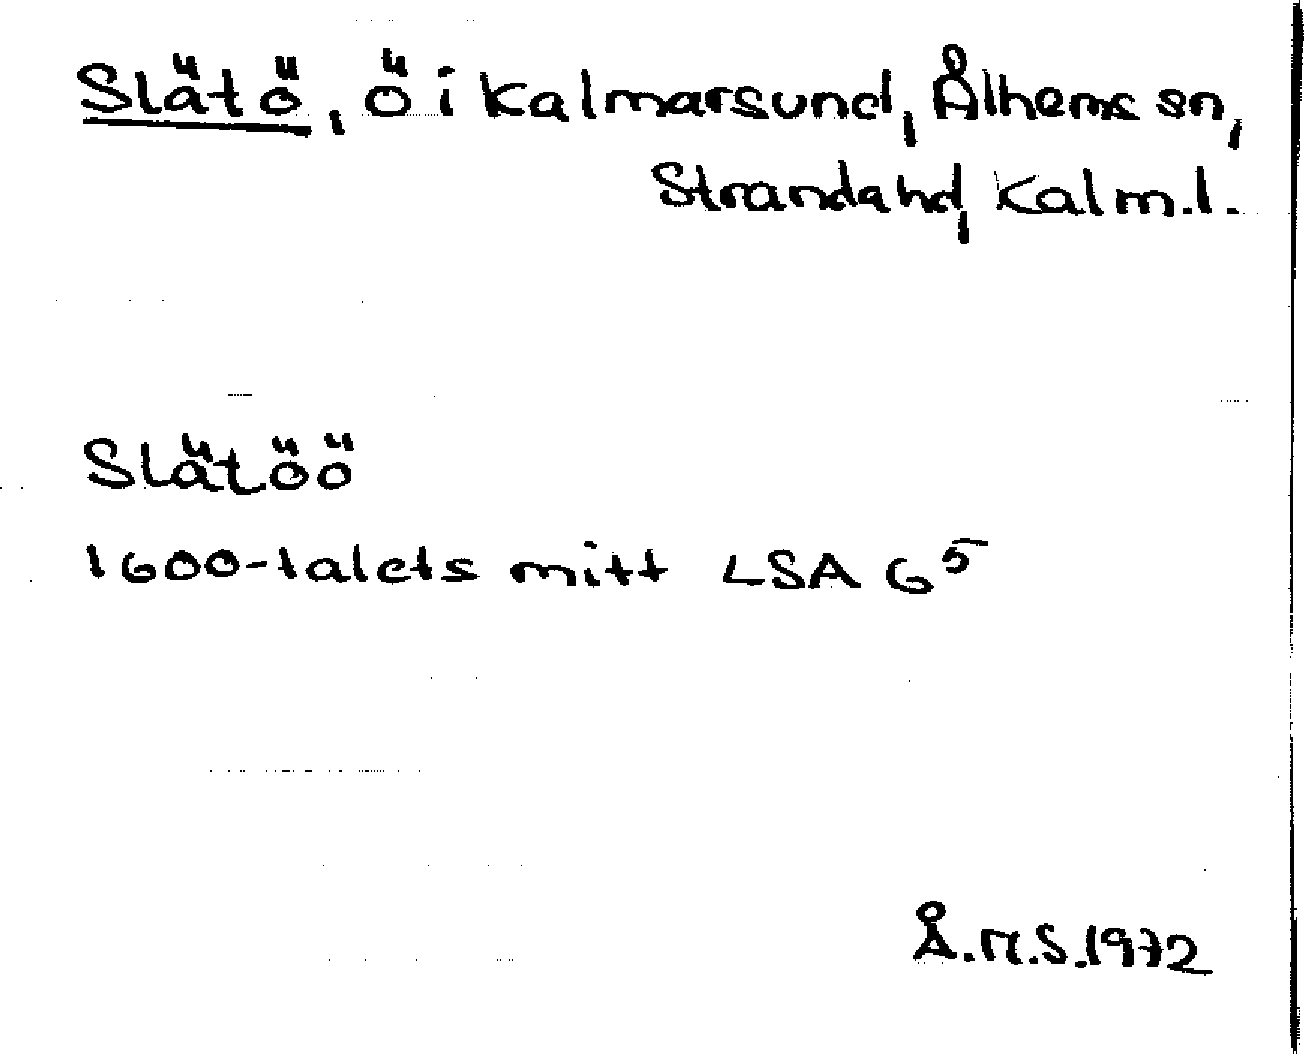 Slätö, ö i Kalmarsund, Ålhems sn,
Strandahd, Kalm.l.
Slätöö
1600-talets mitt LSA G⁵
Å.M.S.1972